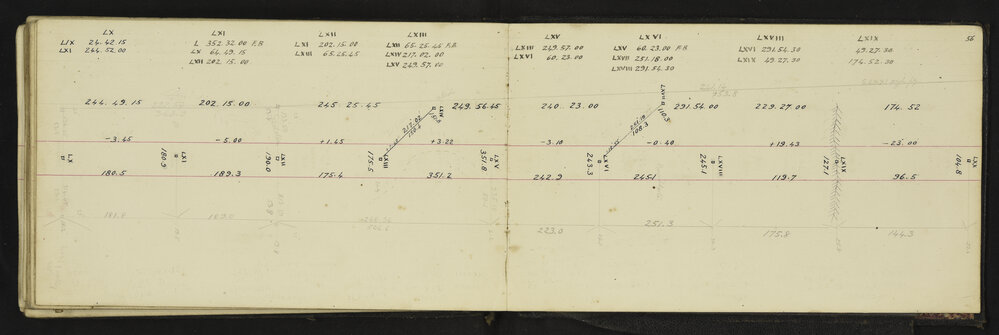 LX
LIX 24.42.15
LXI 244.52.00
LXI
L 352.32.00 F.B
LX 64.49.15
LXII 202.15.00
LXII
LXI 202.15.00
LXIII 65.25.45
LXIII
LXII 65.25.45 F.B
LXIV 217.02.00
LXV 249.57.00
LXV
LXIII 249.57.00
LXVI 60.23.00
LXVI
LXV 60.23.00 F.B
LXVII 251.18.00
LXVIII 291.54.30
LXVIII
LXVI 291.54.30
LXIX 49.27.30
LXIX
49.27.30
174.52.30
56
244.49.15 202.15.00 245.25.45 249.56.45 240.23.00 291.54.00 229.27.00 174.52
LXIV
217.02
150.6
LXVII
110.5
251.18
108.3
-3.45 -5.00 +1.45 +3.22 -3.10 -0.40 +19.43 -23.00
LX
180.9 LXI
190.0 LXII
175.5 LXIII
351.8 LXV
243.3 LXVI
245.1 LXVIII
127.1 LXIX
104.8 LXX
180.5 189.3 175.4 351.2 242.9 245.1 119.7 96.5
223.0 251.3 175.8 144.3